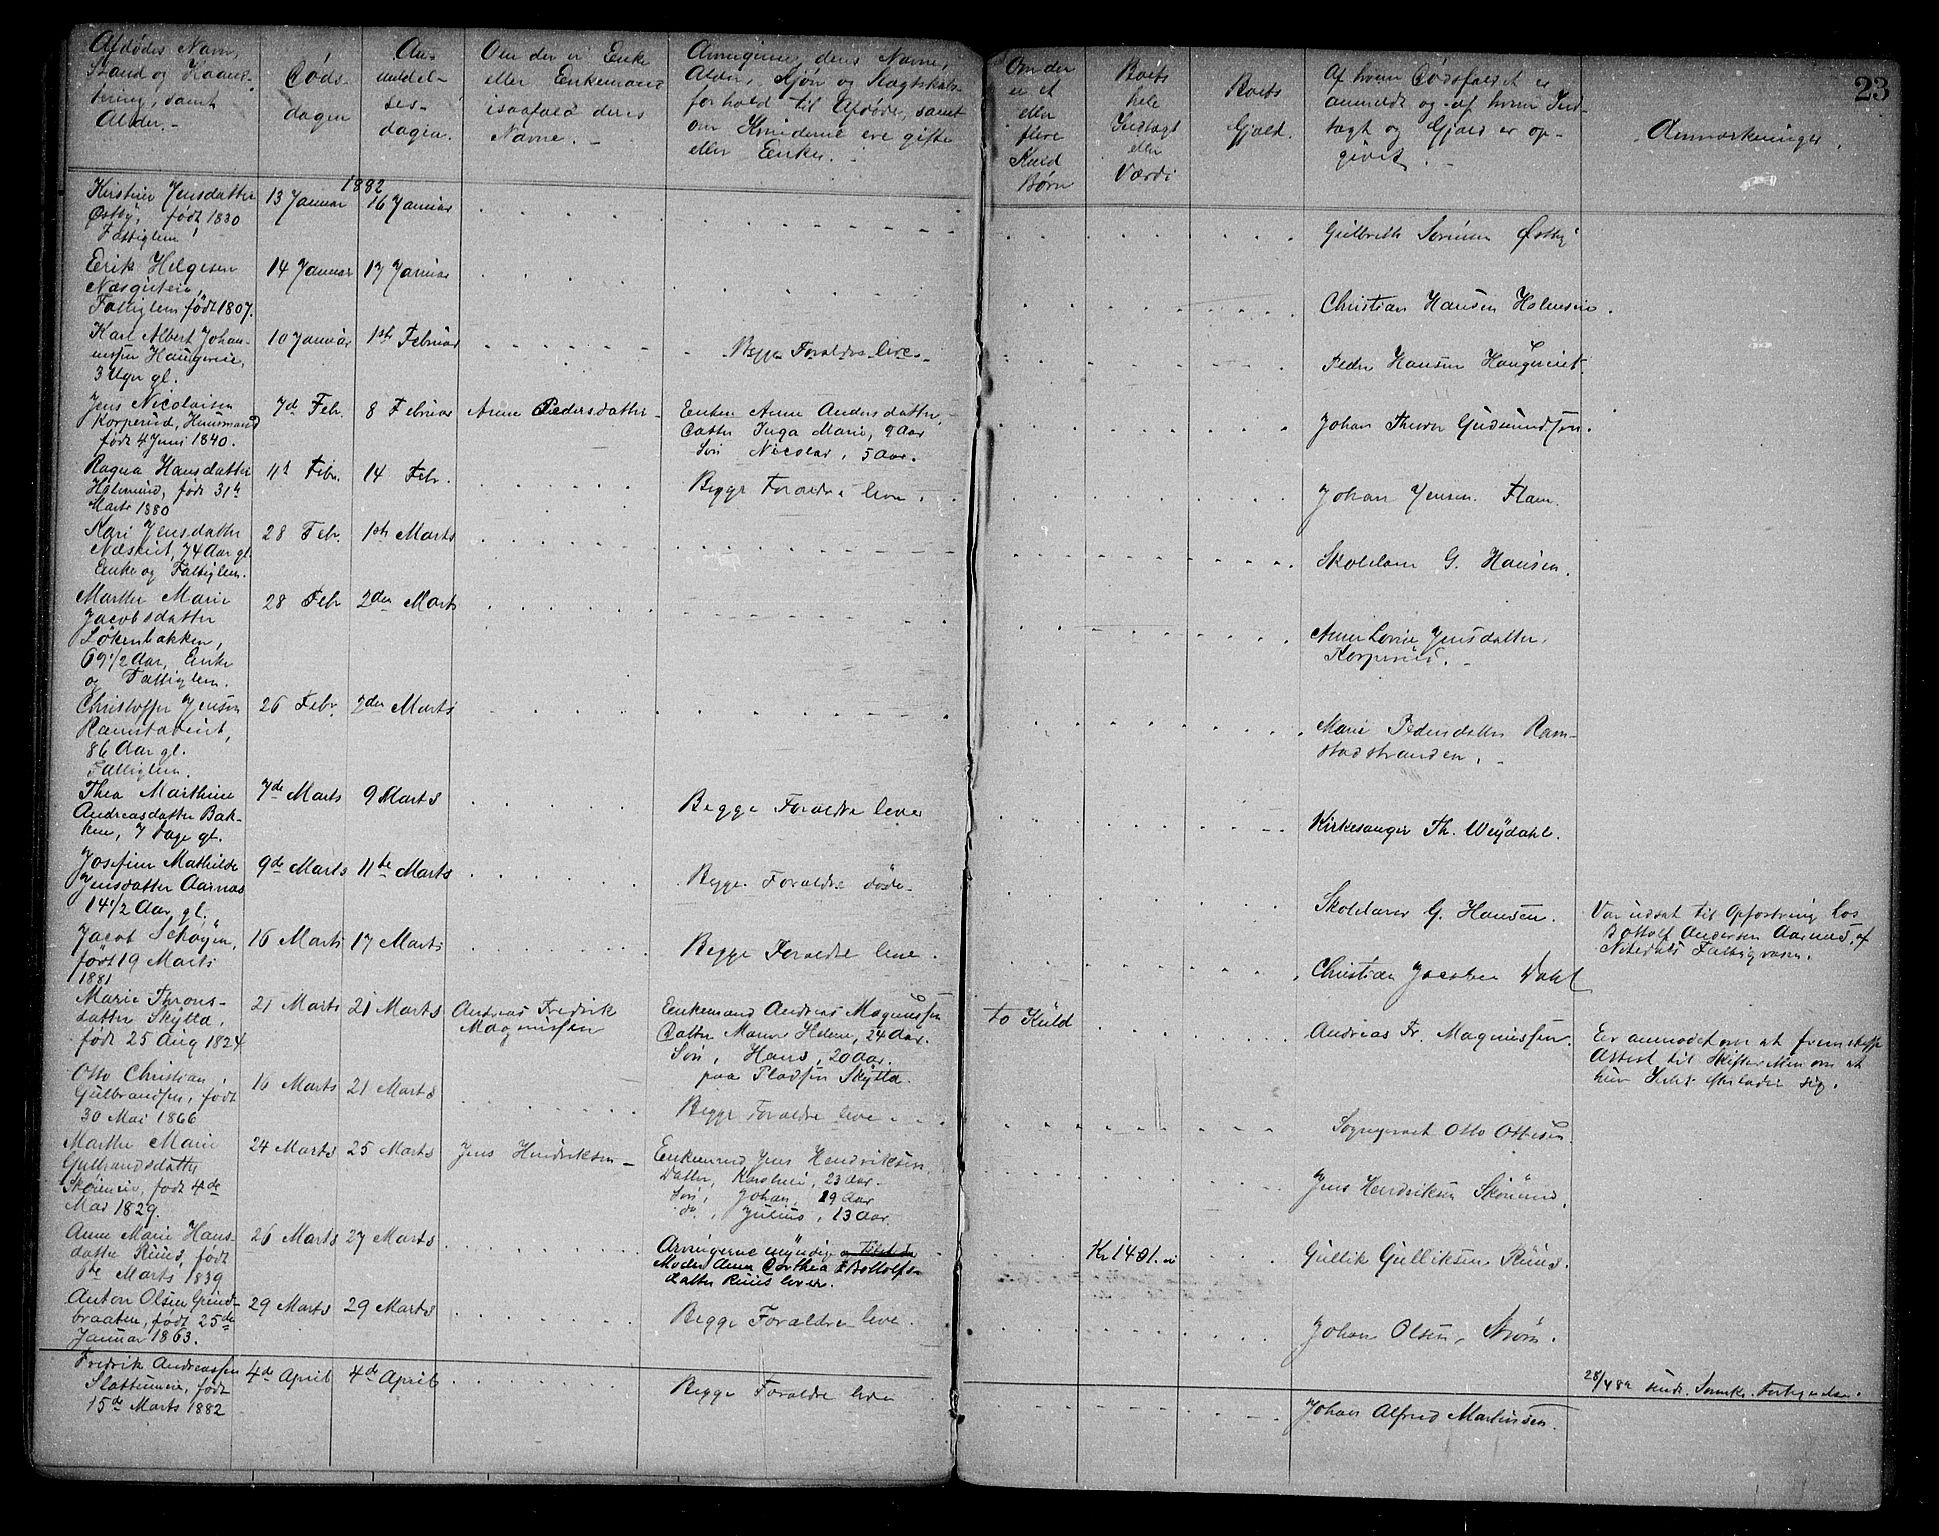 23
Afdødes Navn,
Stand og Haand-
tering, samt
Alder.-
Døds-
dagen
An-
meldel-
ses-
dagen.
Om der er Enke
eller Enkemand
isaafald deres
Navne.-
Arvingerne, deres Navne,
Alder, Kjøn og Slægtskabs-
forhold til Afdøde, samt
om Kvinderne ere gifte
eller Enker.
Om der
er et
eller
flere
Kuld
Børn
Boets
hele
Indtægt
eller
Værdi
Boets
Gjæld.
Af hvem Dødsfaldet er
anmeldt og af hvem Ind-
tægt og Gjæld er op-
givet.-
Anmærkninger.
1882
Jensdatter
Østby, født 1830
Fattiglem
13 Januar
16 Januar
Sørensen Østby
Erik Helgesen
Fattiglem født 1807.
14 Januar
17 Januar
Christian Hansen
Karl Albert Johan-
nessen Haugereie,
3 Uger gl.
10 Januar
1ste Februar
Begge Forældre leve.
Peder Hansen
Jens Nicolaisen
Korperud, Huusmand
født 4 Juni 1840.
7de Febr.
8 Februar
Anne Pedersdatter
Enken Anne Andersdatter,
Datter Inga Marie, 9 Aar
Søn Nicolai, 5 Aar.
Johan Thorer Gudmundsen.
Ragna Hansdatter
født 31te
Marts 1880
11te Febr.
14 Febr.
Begge Forældre leve.
Johan Jensen Flam.
Kari Jensdatter
74 Aar gl.
Enke og Fattiglem.
28 Febr.
1ste Marts
Skolelærer G. Hansen.
Marthe Marie
Jacobsdatter
Løkenbakken,
69 1/2 Aar, Enke
og Fattiglem.
28 Febr
2den Marts
Anne Lovise Jensdatter
Korperud.-
Christoffer Jensen
Ramstadeiet,
86 Aar gl.
Fattiglem.
26 Febr.
2den Marts
Marie Pedersdatter Ram-
stadstranden.-
Thea Marthine
Andreasdatter Bak-
ken, 7 Dage gl.
7de Marts
9 Marts
Begge Forældre leve
Kirkesanger Th. Weydahl.
Josefine Mathilde
Jensdatter Aarnæs
14 1/2 Aar gl.
9de Marts
11te Marts
Begge Forældre døde-
Skolelærer G. Hansen.
Var udsat til Opfostring hos
Botholf Andersen Aarnæs, af
Nitedals Fattigvæsen.
Jacob Schøyen,
født 19 Marts
1881
16 Marts
17 Marts
Begge Forældre leve.
Christian Jacobsen Dahl
Marie Throns-
datter Skytta,
født 25 Aug 1824.
21 Marts
21 Marts
Andreas Fredrik
Magnussen
Enkemand Andreas Magnussen
Datter Maren Helene, 24 Aar.
Søn, Hans, 20 Aar.
paa Pladsen Skytta.
to Kuld
Andreas Fr. Magnussen.
Er anmodet om at fremskaffe
Attest til Skifteretten om at
hun Intet efterlader sig.
Otto Christian
Gulbrandsen, født
30 Mai 1866
16 Marts
21 Marts
Begge Forældre leve.
Sogneprest Otto Ottesen
Marthe Marie
Gulbrandsdatter
født 4de
Mai 1829.
24 Marts
25 Marts
Jens Hendriksen-
Enkemand Jens Hendriksen,
Datter, Karoline, 23 Aar.
Søn, Johan, 19 Aar
do., Julius, 13 Aar.
Jens Hendriksen
Anne Marie Hans-
datter Ruus, født
6te Marts 1839
26 Marts
27 Marts
Arvingerne myndige
Moder Anne Dorthea Botholfs-
datter Ruus lever.
Kr 1401.
Gullik Gulliksen Ruus.
Anton Olsen Grind-
braaten, født 25de
Januar 1863.
29 Marts
29 Marts
Begge Forældre leve.
Johan Olsen, Strøm.
Fredrik Andreassen
Slattumeie, født
15de Marts 1882
4de April
4de April
Begge Forældre leve
Johan Alfred Martinsen.
28/4 82